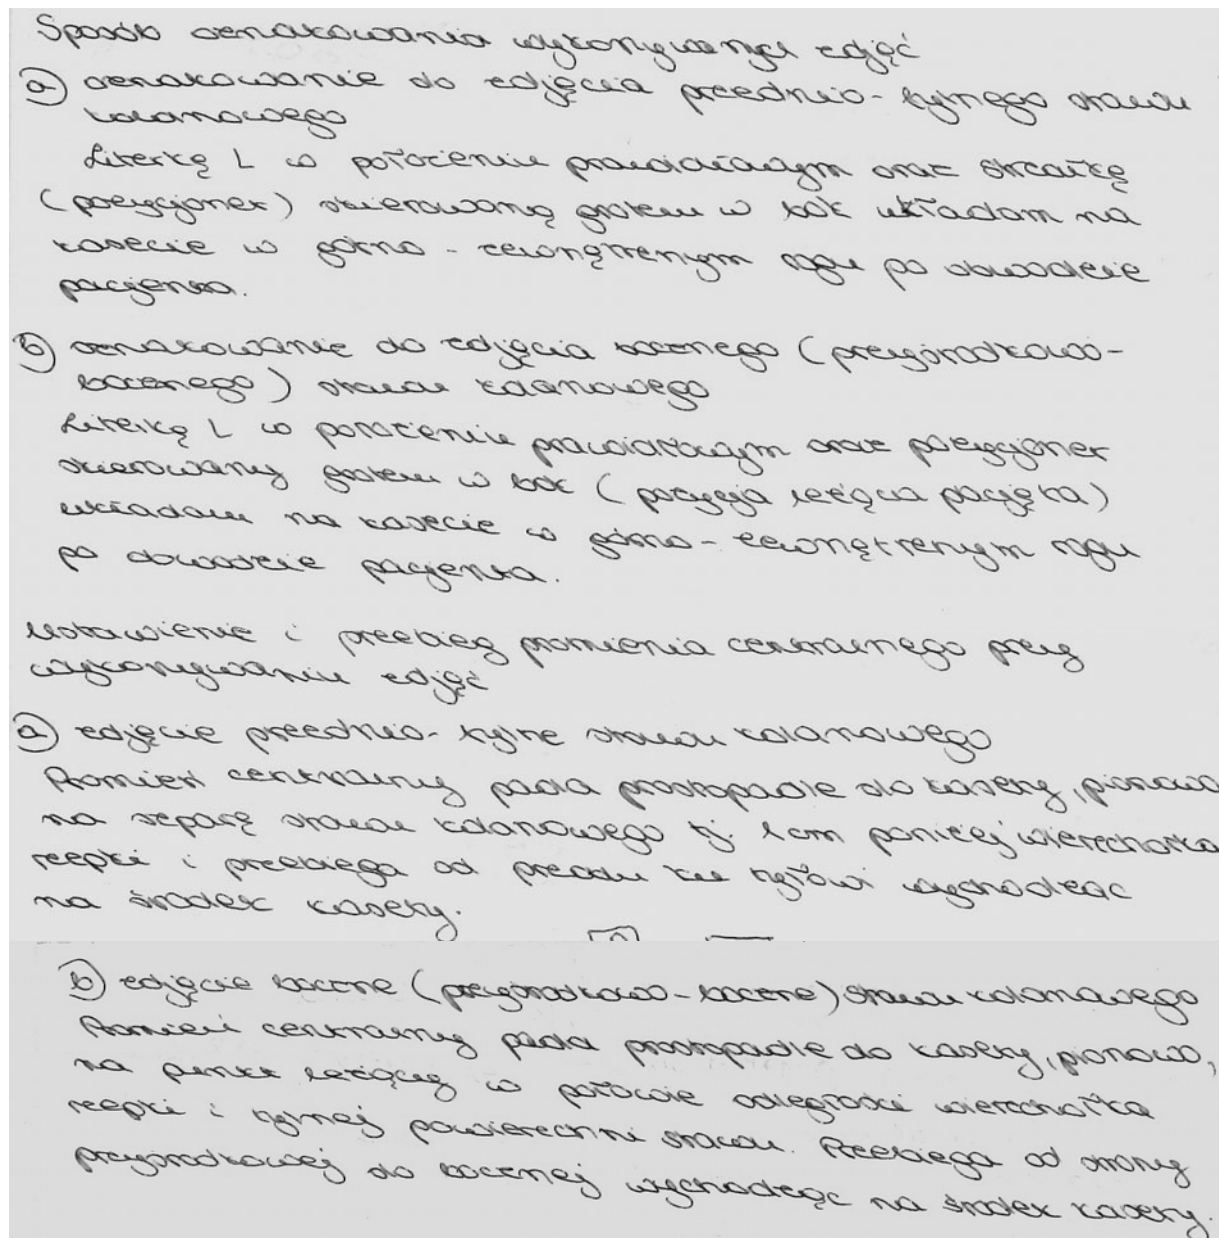 Sposób oznakowania wykonywanych zdjęć
a) oznakowanie do zdjęcia przednio-tylnego stawu
kolanowego
Literkę L w położeniu prawidłowym oraz strzałkę
(pozycjoner) skierowaną grotem w bok układam na
kasecie w górno-zewnętrznym rogu po obwodzie
pacjenta.
b) oznakowanie do zdjęcia bocznego (przyśrodkowo-
bocznego) stawu kolanowego
Literkę L w położeniu prawidłowym oraz pozycjoner
skierowany grotem w bok (pozycja leżąca pacjęta)
układam na kasecie w górno-zewnętrznym rogu
po obwodzie pacjenta.
Ustawienie i przebieg promienia centralnego przy
wykonywaniu zdjęć
a) zdjęcie przednio-tylne stawu kolanowego
Promień centralny pada prostopadle do kasety, pionowo
na szparę stawu kolanowego tj. 1cm poniżej wierzchołka
rzepki i przebiega od przodu ku tyłowi wychodząc
na środek kasety.
b) zdjęcie boczne (przyśrodkowo-boczne) stawu kolanowego
Promień centralny pada prostopadle do kasety, pionowo,
na punkt leżący w połowie odległości wierzchołka
rzepki i tylnej powierzchni stawu. Przebiega od strony
przyśrodkowej do bocznej wychodząc na środek kasety.